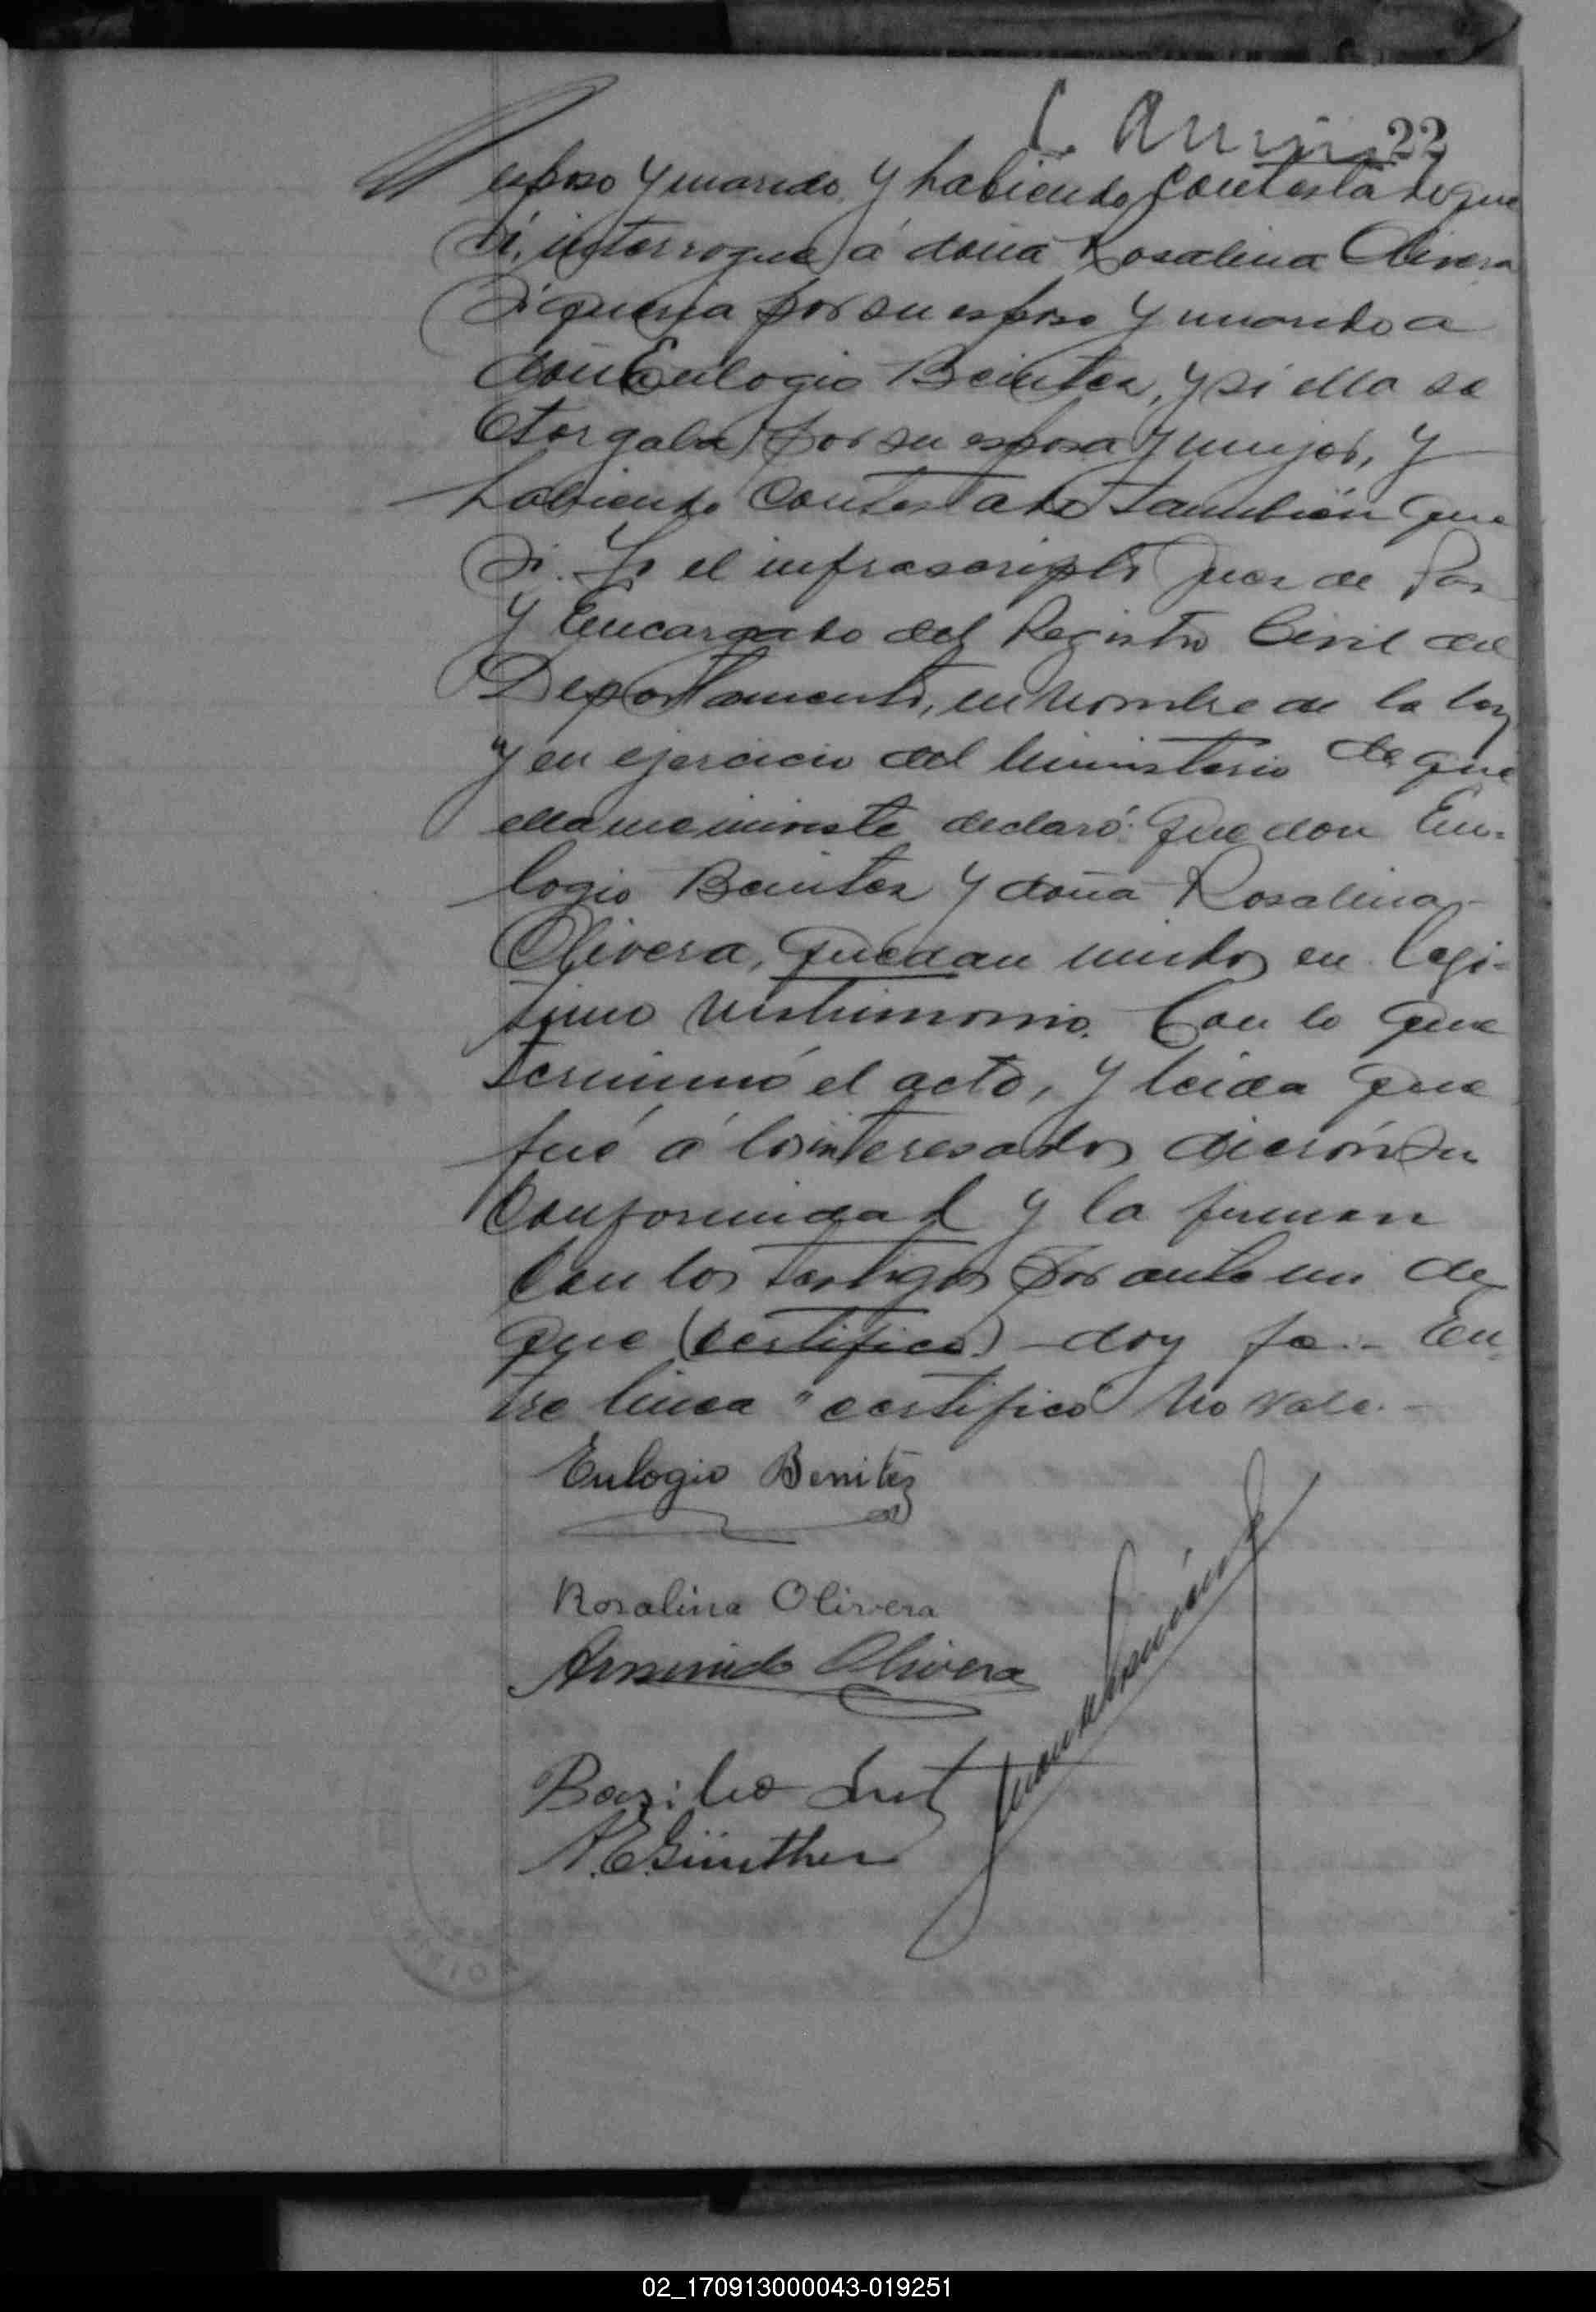 22
esposo y marido, y habiendo contestado que
si, interrogué á doña Rosalina Olivera
si queria por su esposo y marido a
don Eulogio Benitez, y si ella se
otorgaba por su esposa y mujer, y
habiendo contestado tambien que
si. Yo el infrascripto Juez de Paz
y Encargado del Registro Civil del
Departamento, en nombre de la ley
y en ejercicio del ministerio de que
ella me inviste declaró: que don Eu=
logio Benitez y doña Rosalina
Olivera, quedan unidos en legi-
timo matrimonio. Con lo que
terminó el acto, y leida que
fué á los interesados dieron su
conformidad y la firman
con los testigos por ante mi de
que (certifico) - doy fe.- En
tre linea "certifico" no vale.-
Eulogio Benitez
Rosalina Olivera
Olivera
Bazilio
A.E. Günther
02_170913000043-019251